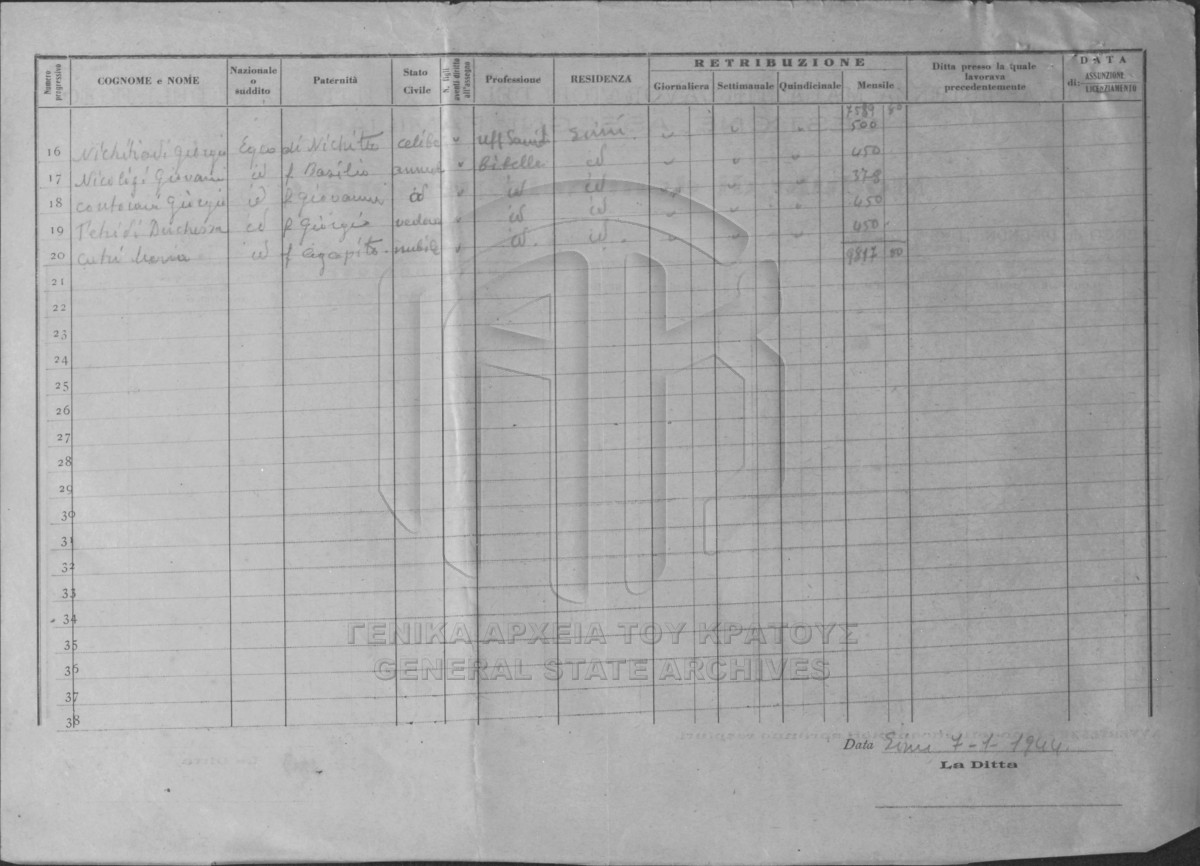 Numero progressivo COGNOME e NOME Nazionale o suddito Paternità Stato Civile N. figli aventi diritto all'assegno Professione RESIDENZA RETRIBUZIONE Giornaliera Settimanale Quindicinale Mensile Ditta presso la quale lavorava precedentemente DATA di: ASSUNZIONE LICENZIAMENTO
7589 80
16 Giorgio Egeo di celibe " Simi " " " 500
17 Giovanni id f Basilio " id " " " 450
18 Giorgio id f Giovanni id " id id " " " 378
19 id f Giorgio vedova " id id " " " 450
20 Maria id f Agapito nubile " id. id. " " " 450
21 9817 80
22
23
24
25
26
27
28
29
30
31
32
33
34
35
36
37
38
ΓΕΝΙΚΑ ΑΡΧΕΙΑ ΤΟΥ ΚΡΑΤΟΥΣ
GENERAL STATE ARCHIVES
Data Simi 7-1-1944
La Ditta